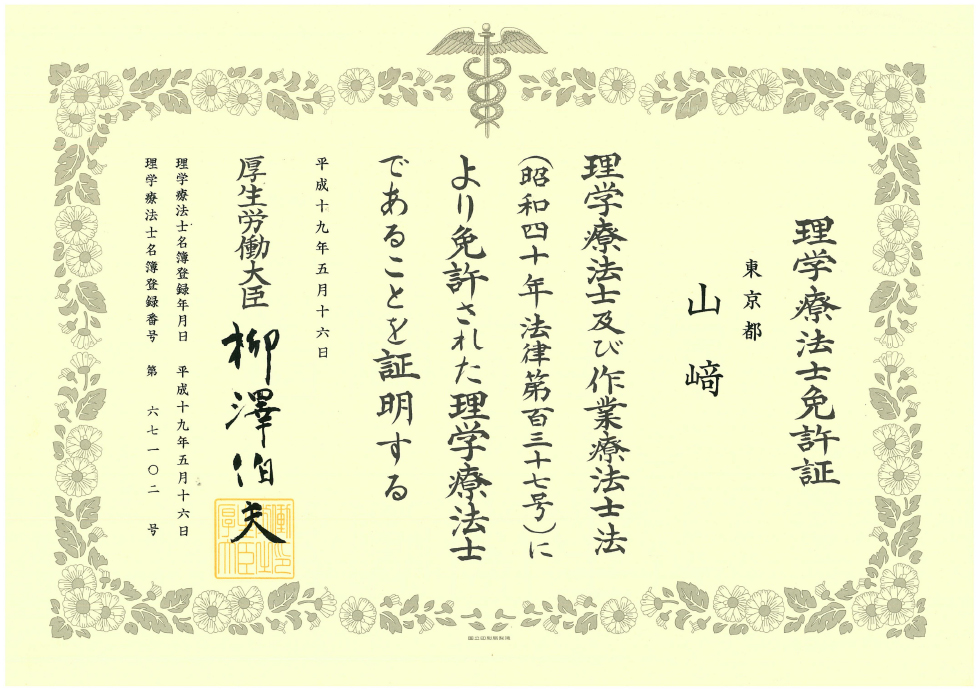 理学療法士免許証
東京都
山﨑
理学療法士及び作業療法士法
(昭和四十年法律第百三十七号)に
より免許された理学療法士
であることを証明する
平成十九年五月十六日
厚生労働大臣 柳澤伯夫
理学療法士名簿登録年月日 平成十九年五月十六日
理学療法士名簿登録番号 第 六七一〇二 号
国立印刷局製造